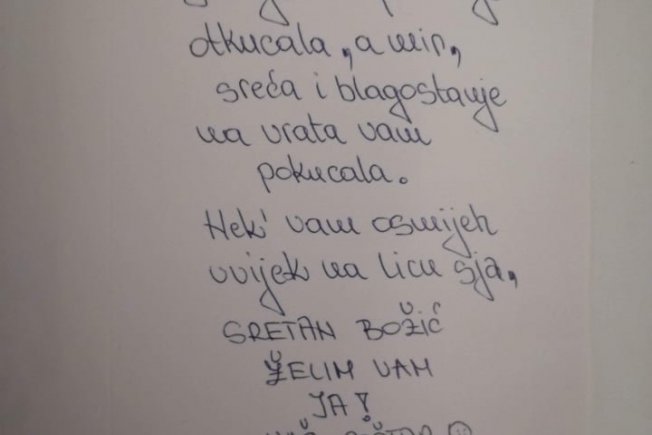 otkucala, a mir,
sreća i blagostanje
na vrata vam
pokucala.
Nek' vam osmijeh
uvijek na licu sja,
SRETAN BOŽIĆ
ŽELIM VAM
JA!